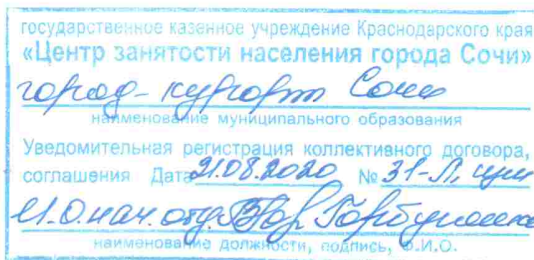 государственное казенное учреждение Краснодарского края
«Центр занятости населения города Сочи»
город-курорт Сочи
наименование муниципального образования
Уведомительная регистрация коллективного договора,
соглашения Дата 21.08.2020 № 31-Л,
И.О.нач.отд.
наименование должности, подпись, Ф.И.О.